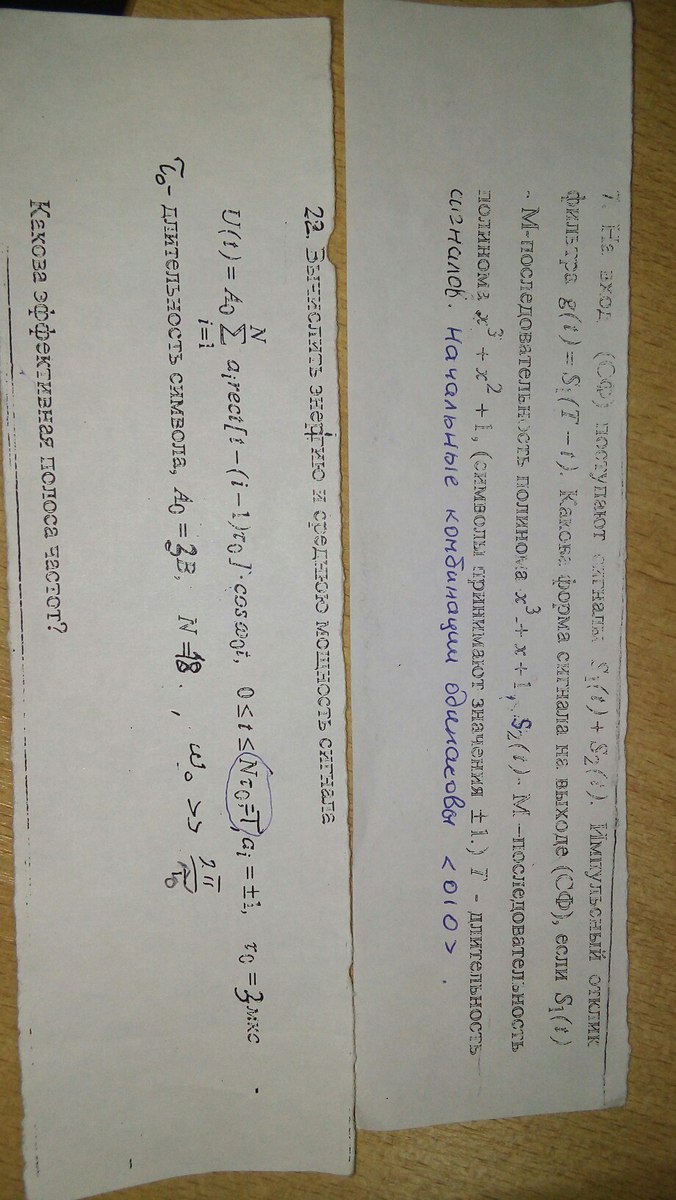 7. На вход (СФ) поступают сигналы S₁(t) + S₂(t). Импульсный отклик
фильтра g(t) = S₁(T − t). Какова форма сигнала на выходе (СФ), если S₁(t)
- М-последовательность полинома x³ + x + 1, S₂(t) - М-последовательность
полинома x³ + x² + 1, (символы принимают значения ± 1.) T - длительность
сигналов. Начальные комбинации одинаковы <010>.
22. Вычислить энергию и среднюю мощность сигнала
U(t) = A₀ ∑ᵢ₌₁ᴺ aᵢrect[t − (i − 1)τ₀]·cosω₀t, 0 ≤ t ≤ Nτ₀=T, aᵢ = ±1, τ₀ = 3мкс
τ₀- длительность символа, A₀ = 3В, N = 18 , ω₀ >> 2π/τ₀
Какова эффективная полоса частот?